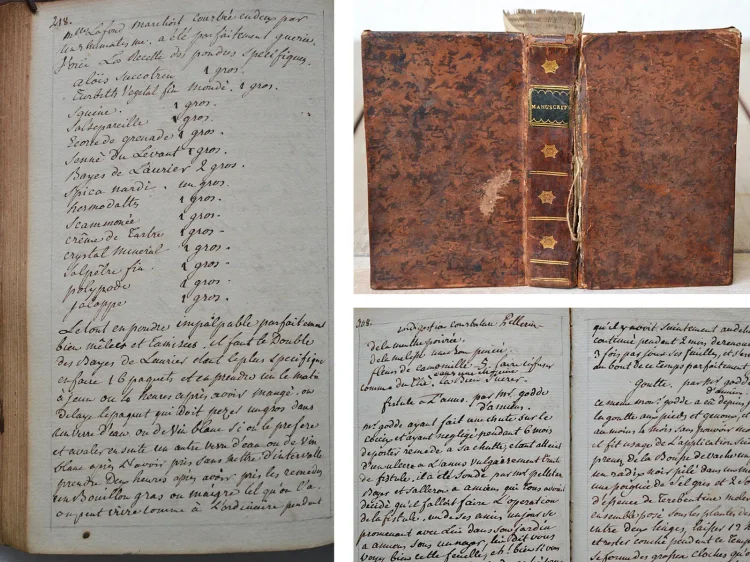 218.
Mme Lafond marchoit courbée en deux par
a été parfaitement guerie.
Voici La Recette des poudres Specifiques.
aloës Succotrin 1 gros.
Turbith Vegetal fin mondé. 1 gros.
Squine. 1 gros.
Salsepareille 1 gros.
Ecorce de grenade 1 gros.
Senné Du Levant 1 gros.
Bayes de Laurier 2 gros.
Spica nardi. un gros.
hermodattes 1 gros.
Scammonée 1 gros.
crême de Tartre 1 gros.
crystal mineral 1 gros.
Salpêtre fin 1 gros.
polypode 1 gros.
jalappe 1 gros.
Le tout en poudre impalpable parfaitement
bien mêlés et tamisés. il faut le Double
des Bayes de Lauries dont le plus specifique
en faire 16 paquets et en prendre un le matin
à jeun ou 4 heures après avoir mangé, on
delaye le paquet qui doit peser un gros dans
un verre d'eau ou de vin blanc si on le prefere
et avaler ensuite un autre verre d'eau ou de vin
blanc après L'avoir pris sans mettre d'intervalle
prendre Deux heures apres avoir pris les remedes
un Bouillon gras ou maigre tel qu'on l'a
ou peut vivre comme à L'ordinaire pendant
MANUSCRIPT
308.
indigestion courbature Pellerin
de la menthe poivrée
de la melisse une pincée
fleurs de camomille 3. faire infuser
comme du Thé, Sucrer.
fistule a L'anus. par mr. godde
d'amiens.
mr. godde ayant fait une chute sur le
et ayant negligé pendant 6 mois
d'aporter remede a Sa chutte, étant atteint
d'un ulcere a L'anus vulgairement
de fistule. il a été Sondé par mrs pelletier
Bays et Salleron a amiens qui tous avoient
decidé qu'il fallait faire L'operation
de la fistule. un de Ses amis un jour se
promenant avec Lui dans Son jardin
a amiens Sous un noyer, lui dit vous
voyez bien cette feuille, eh! bien si vous
qu'il y avoit
continué pendant 2 mois
3 fois par jour Ses feuilles, et
au bout de ce temps parfaitement
Goutte. par mr. godde
d'amiens.
ce meme mr. godde a eu depuis
la goutte aux pieds et genoux,
au moins 2 mois Sans pouvoir
et fit usage de L'application
prenez de la Bouse de vache
un radix noir pilé dans un
une poignée de Sel gris et 2
d'essence de Terebentine
ensemble posé Sous les plantes des
entre deux linges, laissez 12
et rester couché pendant ce Temps
Se forme des grosses cloches